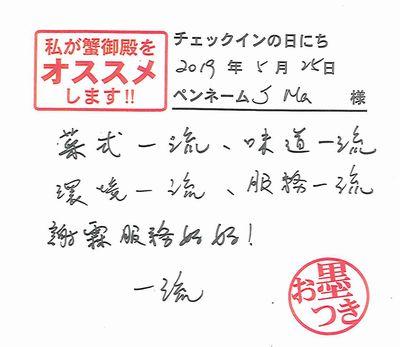 私が蟹御殿を
オススメ
します!!
チェックインの日にち
2019 年 5 月 25日
ペンネーム J Ma 様
菜式一流、味道一流
環境一流、服務一流
謝霖服務好好!
一流
墨
お つき